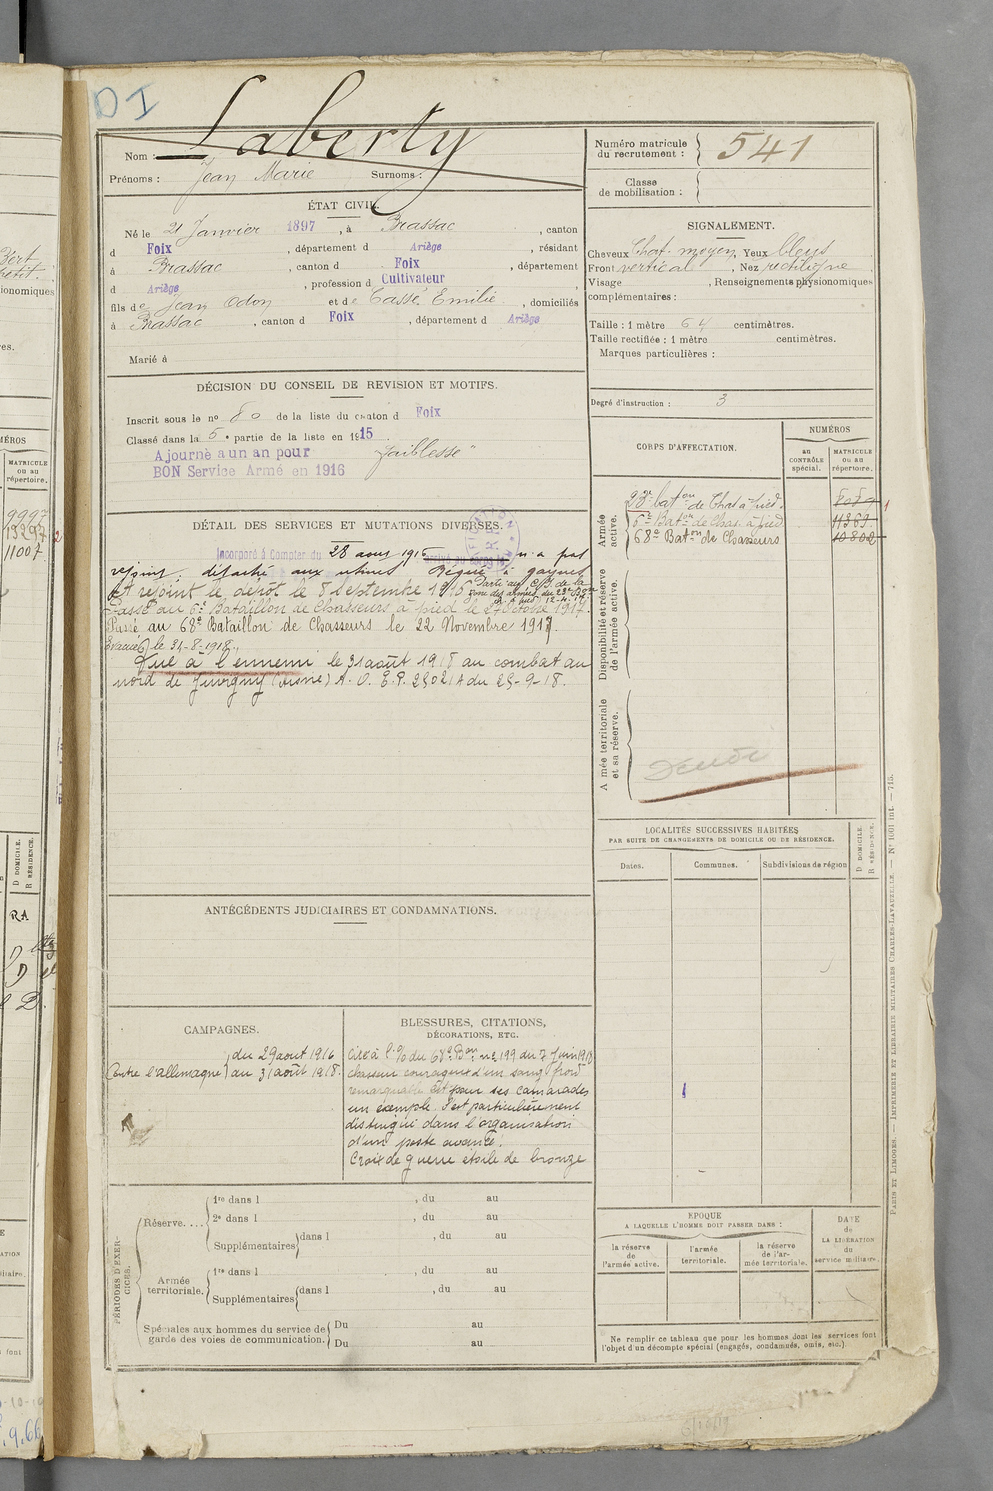 D I
Nom : Laberty
Prénoms : Jean Marie Surnoms :
Numéro matricule
du recrutement : 541
Classe
de mobilisation :
ÉTAT CIVIL.
Né le 21 Janvier 1897, à Brassac, canton
d Foix, département d Ariège, résidant
à Brassac, canton d Foix, département
d Ariège, profession d Cultivateur
fils de Jean Odon et de Cassé Emilie, domiciliés
à Brassac, canton d Foix, département d Ariège
Marié à
SIGNALEMENT.
Cheveux Chat. moyen, Yeux bleus
Front vertical, Nez rectiligne
Visage , Renseignements physionomiques
complémentaires :
Taille : 1 mètre 64 centimètres.
Taille rectifiée : 1 mètre centimètres.
Marques particulières :
Degré d'instruction : 3
DÉCISION DU CONSEIL DE REVISION ET MOTIFS.
Inscrit sous le no 80 de la liste du canton d Foix
Classé dans la 5e partie de la liste en 1915
Ajourné a un an pour faiblesse"
BON Service Armé en 1916
DÉTAIL DES SERVICES ET MUTATIONS DIVERSES.
Incorporé à Compter du 28 aout 1916 n'a pas
rejoint, détaché aux usines
A rejoint le dépôt le 8 Septembre 1916
Passé au 6e Bataillon de Chasseurs à pied le 27 Octobre 1917.
Passé au 68e Bataillon de Chasseurs le 22 Novembre 1917.
Evacué le 24-8-1918.
Tué à l'ennemi le 31 août 1918 au combat au
nord de Juvigny (Aisne) A. O. E. P. 25021A du 25-9-18.
CORPS D'AFFECTATION.
NUMÉROS
au
CONTRÔLE
spécial.
MATRICULE
ou au
répertoire.
Armée
active.
23e baton de Chas. à pied. 8089
6e Baton de Chas. à pied 11369
68e Baton de Chasseurs 10802
Disponibilité et réserve
de l'armée active.
Armée territoriale
et sa réserve.
Décédé
LOCALITÉS SUCCESSIVES HABITÉES
PAR SUITE DE CHANGEMENTS DE DOMICILE OU DE RÉSIDENCE.
Dates.
Communes.
Subdivisions de région
D DOMICILE.
R RÉSIDENCE.
ANTÉCÉDENTS JUDICIAIRES ET CONDAMNATIONS.
CAMPAGNES.
Contre l'allemagne du 29 aout 1916
au 31 août 1918.
BLESSURES, CITATIONS,
DÉCORATIONS, ETC.
Cité à l'O/ du 68e Bon no 199 du 7 Juin 1918
chasseur courageux d'un sang froid
remarquable est pour ses camarades
un exemple. S'est particulièrement
distingué dans l'organisation
d'un poste avancé.
Croix de guerre étoile de bronze
PÉRIODES D'EXERCICES.
Réserve....
1re dans l , du au
2e dans l , du au
Supplémentaires dans l , du au
Armée
territoriale.
1re dans l , du au
Supplémentaires dans l , du au
Spéciales aux hommes du service de
garde des voies de communication.
Du au
Du au
ÉPOQUE
A LAQUELLE L'HOMME DOIT PASSER DANS :
la réserve
de
l'armée active.
l'armée
territoriale.
la réserve
de l'ar-
mée territoriale.
DATE
de
LA LIBÉRATION
du
service militaire.
Ne remplir ce tableau que pour les hommes dont les services font
l'objet d'un décompte spécial (engagés, condamnés, omis, etc.).
PARIS ET LIMOGES. — IMPRIMERIE ET LIBRAIRIE MILITAIRES CHARLES-LAVAUZELLE. — No 1001 int. — 715.
ionomiques
MATRICULE
ou au
répertoire.
9997
13297
11007
D DOMICILE.
R RÉSIDENCE.
RA